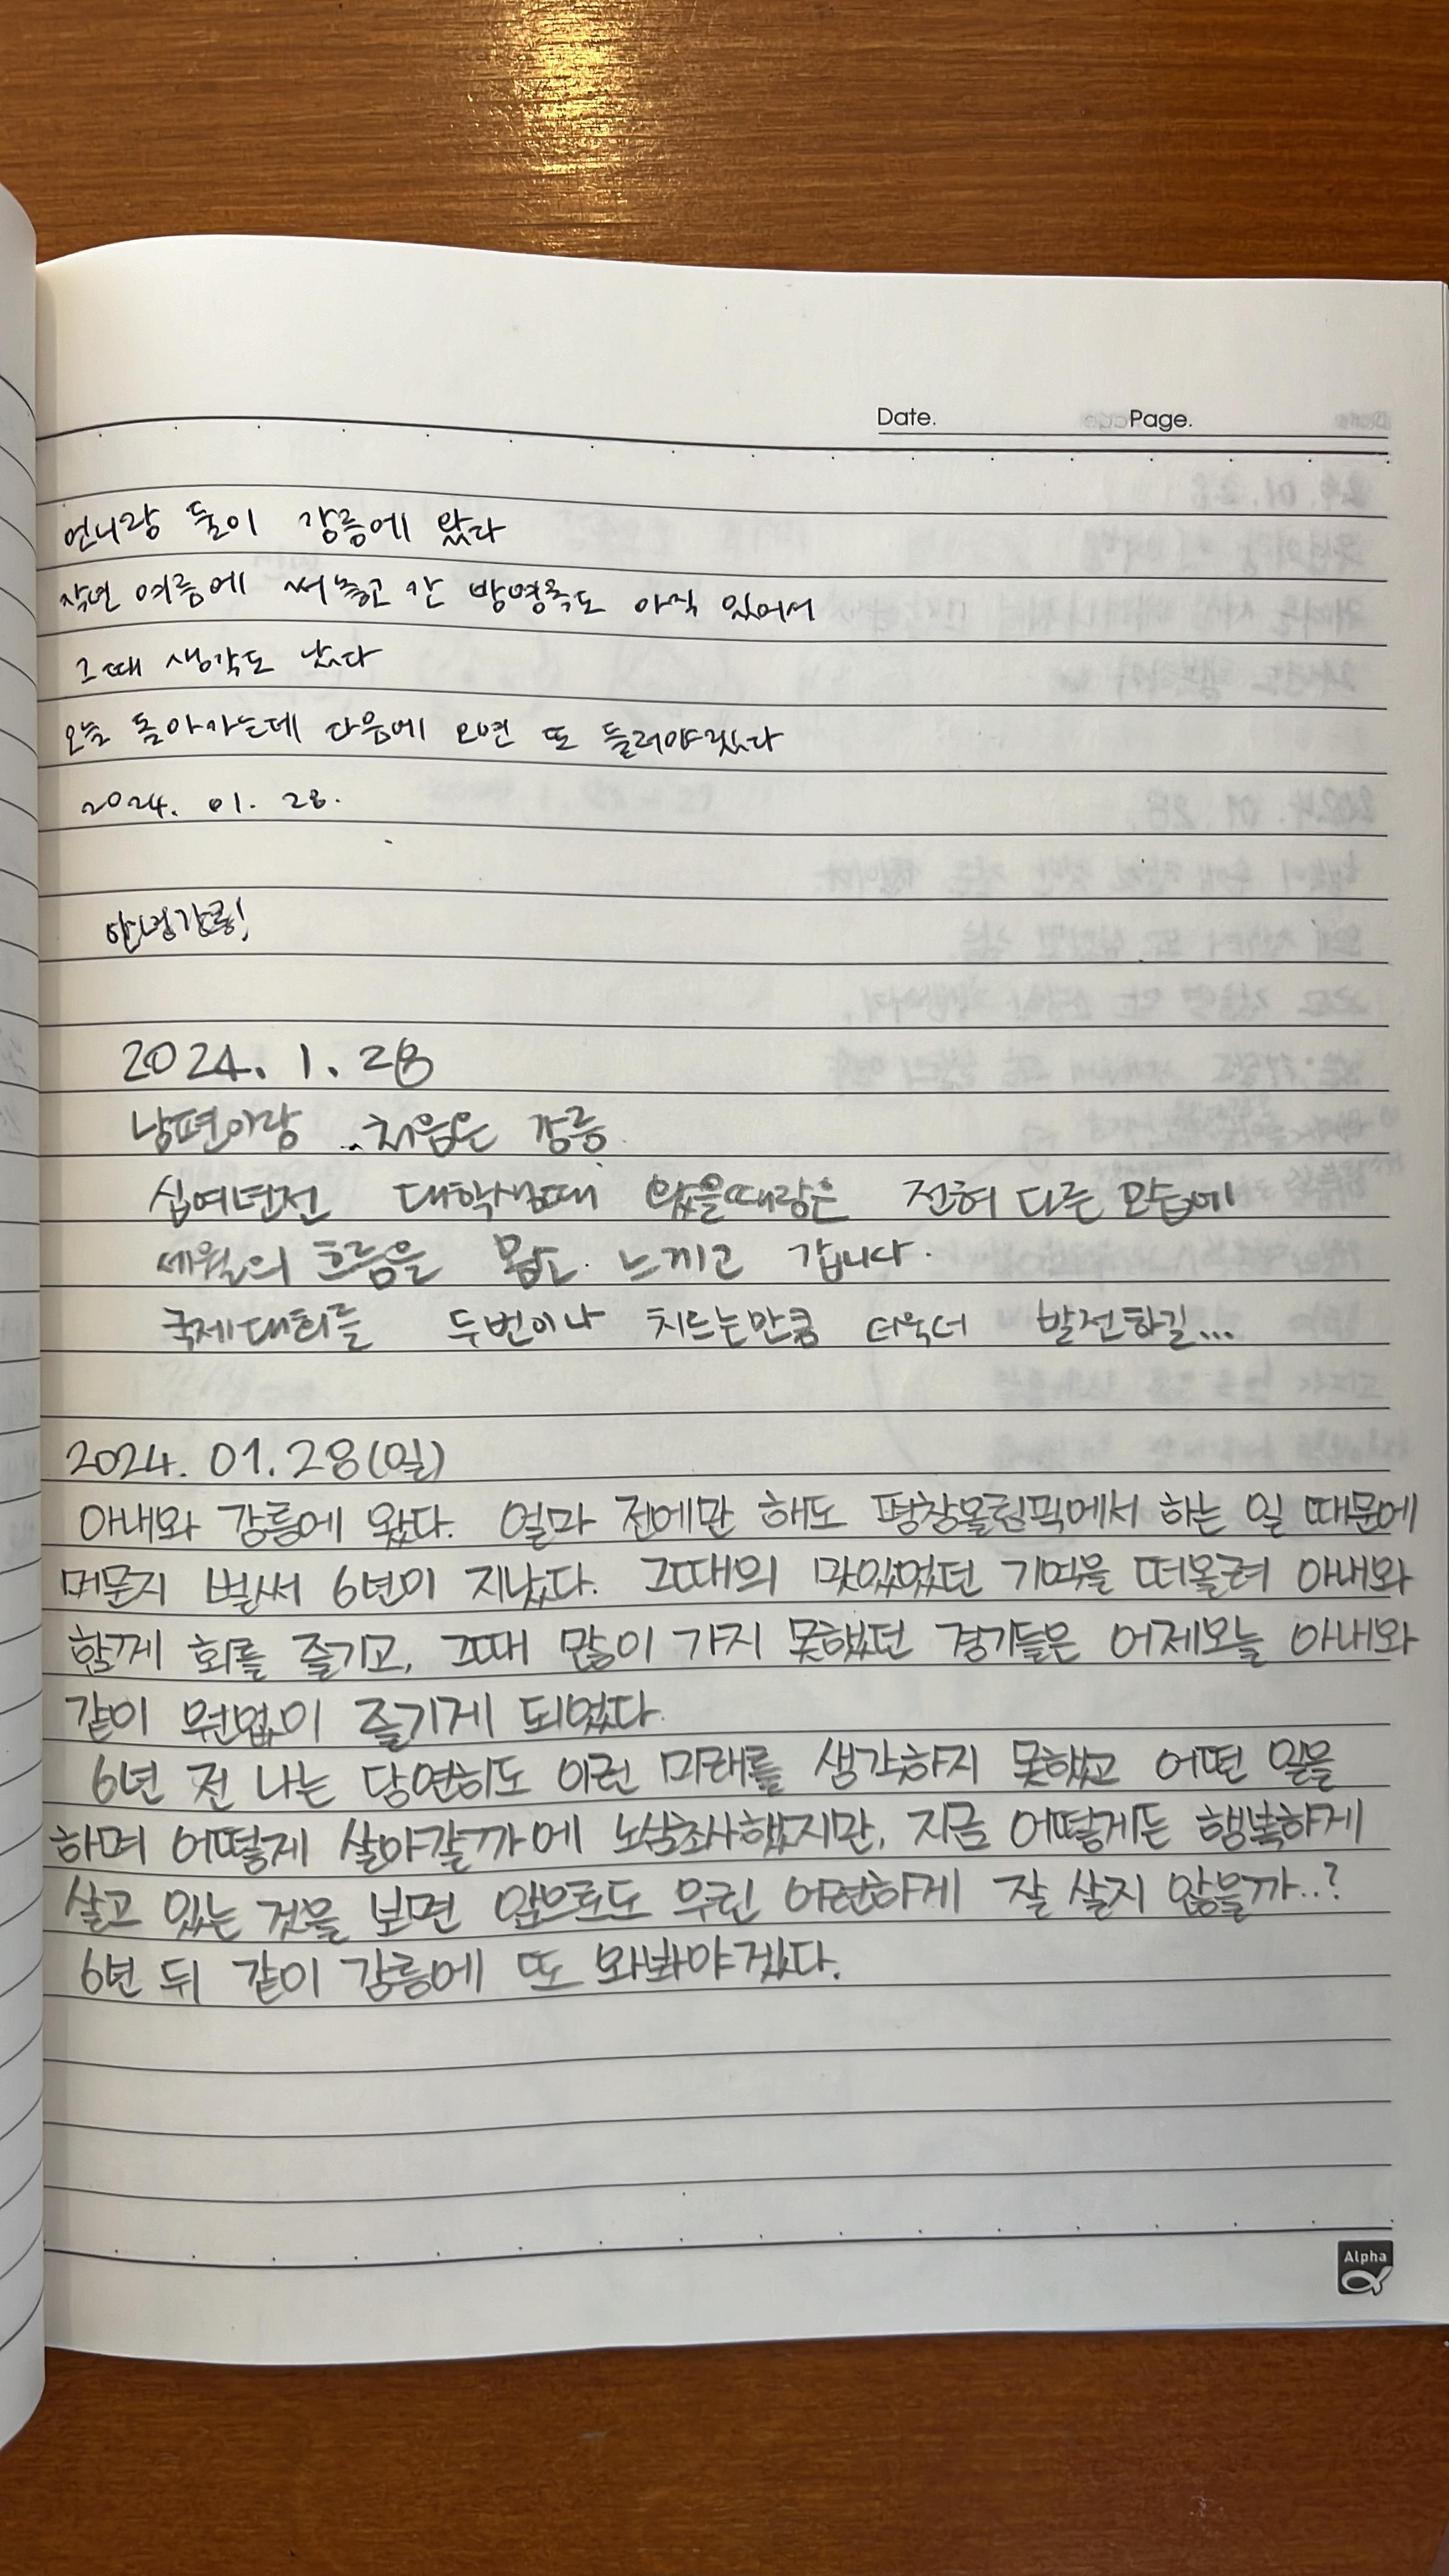 Date. Page.
언니랑 둘이 강릉에 왔다
작년 여름에 써놓고 간 방명록도 아직 있어서
그때 생각도 났다
오늘 돌아가는데 다음에 오면 또 들러야겠다
2024. 01. 28.
안녕강릉!
2024. 1. 28
남편이랑 ..처음온 강릉
십여년전 대학생때 왔을때랑은 전혀 다른 모습에
세월의 흐름을 느끼고 갑니다.
국제대회를 두번이나 치르는만큼 더욱더 발전하길...
2024. 01. 28(일)
아내와 강릉에 왔다. 얼마 전에만 해도 평창올림픽에서 하는 일 때문에
머문지 벌써 6년이 지났다. 그때의 맛있었던 기억을 떠올려 아내와
함께 회를 즐기고, 그때 많이 가지 못했던 경기들은 어제오늘 아내와
같이 원없이 즐기게 되었다.
6년 전 나는 당연히도 이런 미래를 생각하지 못했고 어떤 일을
하며 어떻게 살아갈까에 노심초사했지만, 지금 어떻게든 행복하게
살고 있는 것을 보면 앞으로도 우린 어련하게 잘 살지 않을까..?
6년 뒤 같이 강릉에 또 와봐야겠다.
Alpha